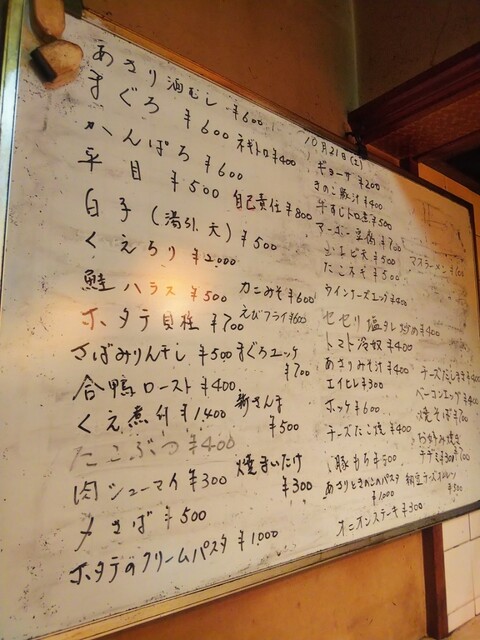 あさり酒むし ¥600
まぐろ ¥600 ネギトロ ¥400
かんぱち ¥600
平目 ¥500 自己責任 ¥800
白子（湯引、天） ¥500
¥2,000
鮭ハラス ¥500 カニみそ ¥600
ホタテ貝柱 ¥700 えびフライ ¥600
さばみりん干し ¥500 まぐろユッケ ¥700
合鴨ロースト ¥400
くえ煮付 ¥1,400 新さんま ¥500
たこぶつ ¥400
肉シューマイ ¥300 焼まいたけ ¥300
〆さば ¥500
ホタテのクリームパスタ ¥1,000
10月21日（土）
ギョーザ ¥200
きのこ豚汁 ¥400
牛すじトロ煮 ¥500
マーボー豆腐 ¥700
¥500 マヌラーメン
¥500
ウインナーエッグ ¥400
セセリ塩タレ炒め ¥400
トマト冷奴 ¥400
あさりみそ汁 ¥400
エイヒレ ¥300 ベーコンエッグ ¥400
ホッケ ¥600 焼そば ¥700
チーズたこ焼 ¥400 お好み焼き
豚もち ¥500 チヂミ
あさりときのこのパスタ ¥1,000
¥500
オニオンステーキ ¥300